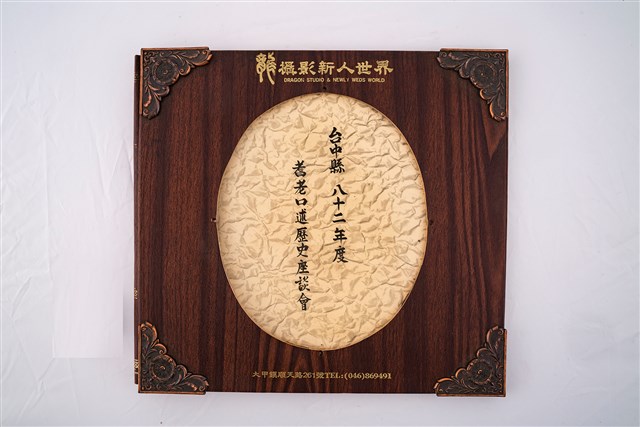 龍攝影新人世界
DRAGON STUDIO & NEWLY WEDS WORLD
台中縣 八十二年度
耆老口述歷史座談會
大甲鎮順天路261號TEL:(046)869491